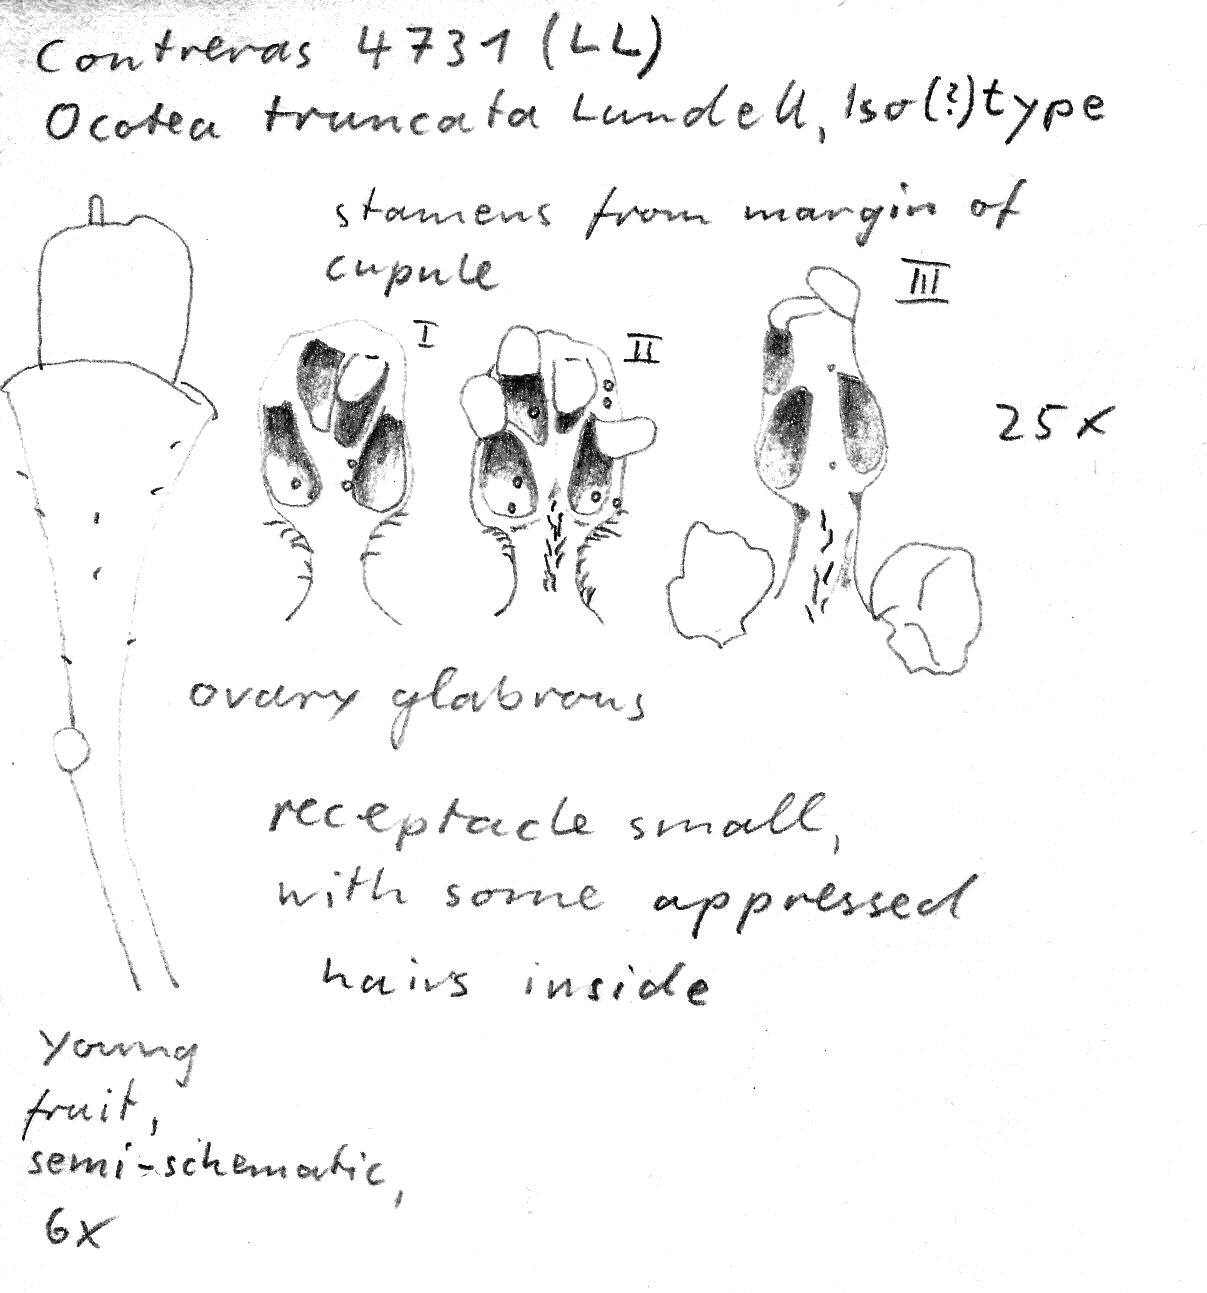 Contreras 4731 (LL)
Ocotea truncata Lundell, Iso(?)type
stamens from margin of
cupule
I
II
III
25x
ovary glabrous
receptacle small,
with some appressed
hairs inside
Young
fruit,
semi-schematic,
6x